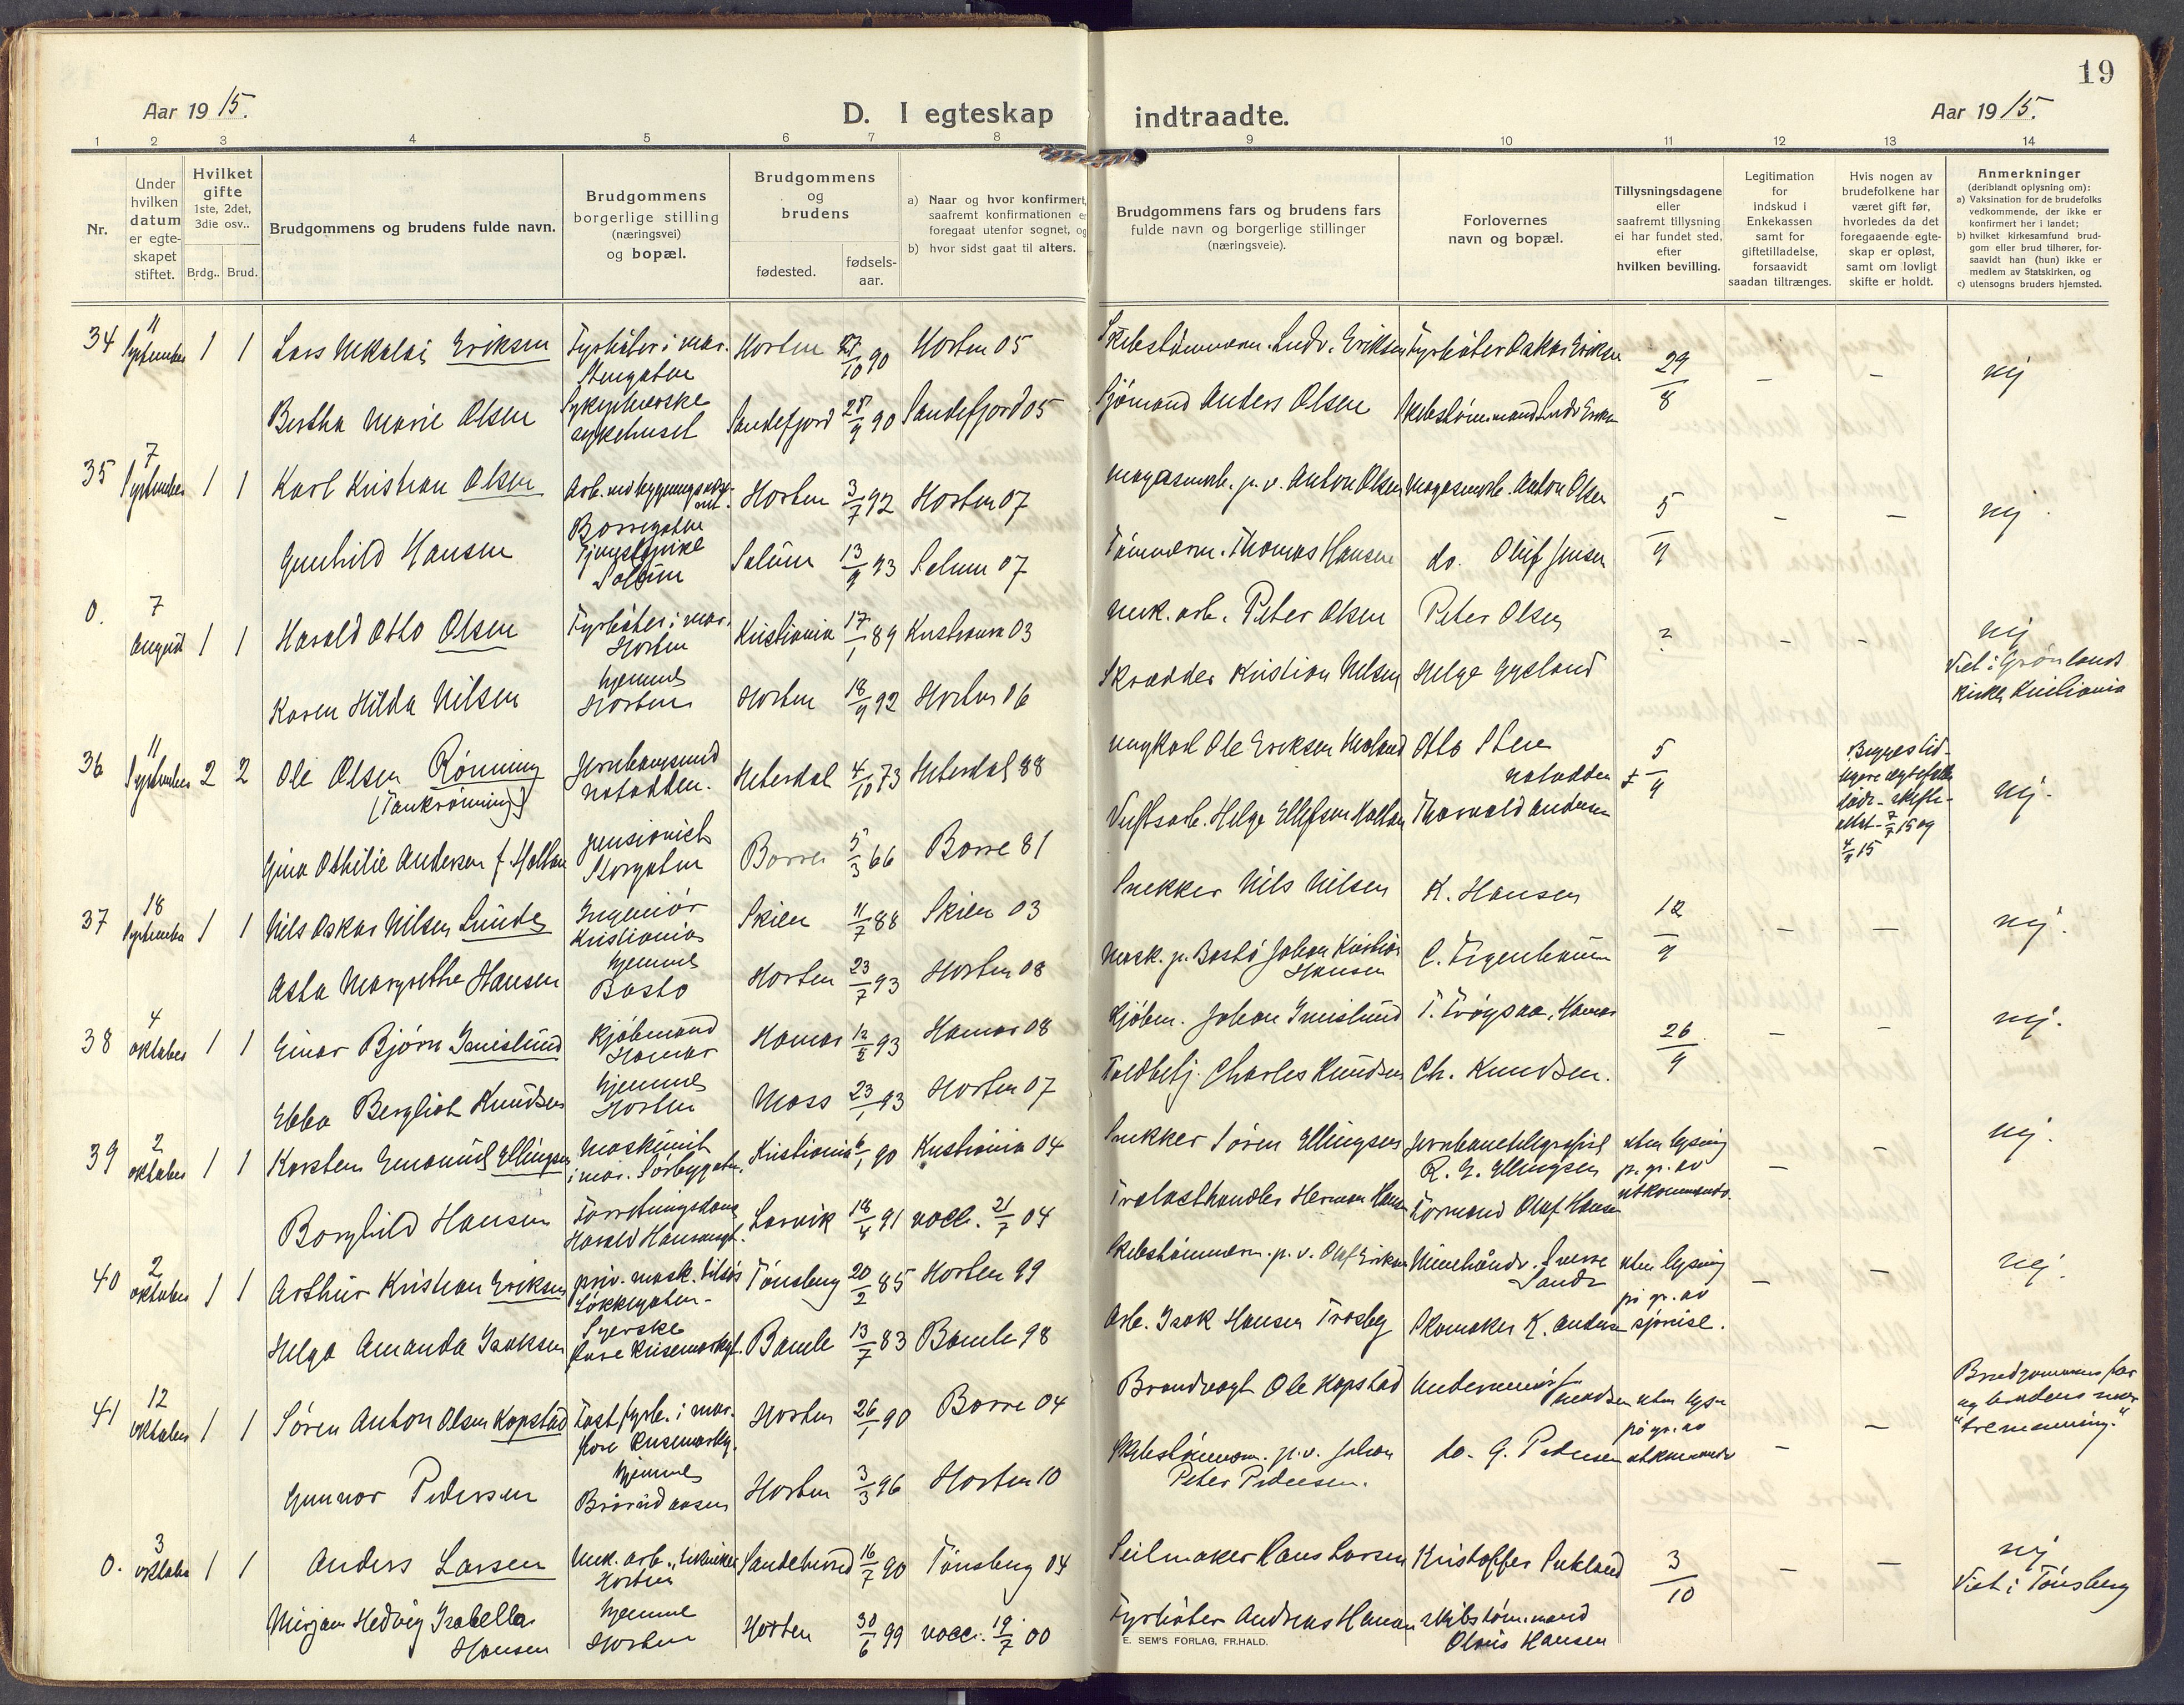 19
Aar 1915.
D. I egteskap indtraadte.
Aar 1915.
1 2 3 4 5 6 7 8 9 10 11 12 13 14
Nr.
Under
hvilken
datum
er egte-
skapet
stiftet.
Hvilket
gifte
1ste, 2det,
3die osv..
Brdg.. Brud.
Brudgommens og brudens fulde navn.
Brudgommens
borgerlige stilling
(næringsvei)
og bopæl.
Brudgommens
og
brudens
fødested.
fødsels-
aar.
a) Naar og hvor konfirmert,
saafremt konfirmationen er
foregaat utenfor sognet, og
b) hvor sidst gaat til alters.
Brudgommens fars og brudens fars
fulde navn og borgerlige stillinger
(næringsveie).
Forlovernes
navn og bopæl.
Tillysningsdagene
eller
saafremt tillysning
ei har fundet sted,
efter
hvilken bevilling.
Legitimation
for
indskud i
Enkekassen
samt for
giftetilladelse,
forsaavidt
saadan tiltrænges.
Hvis nogen av
brudefolkene har
været gift før,
hvorledes da det
foregaaende egte-
skap er opløst,
samt om lovligt
skifte er holdt.
Anmerkninger
(deriblandt oplysning om):
a) Vaksination for de brudefolks
vedkommende, der ikke er
konfirmert her i landet;
b) hvilket kirkesamfund brud-
gom eller brud tilhører, for-
saavidt han (hun) ikke er
medlem av Statskirken, og
c) utensogns bruders hjemsted.
34 11 September 1 1 Lars Nikolai Eriksen Fyrbøter i mar. Stengaten Horten 27/10 90 Horten 05 Skibstømmerm. Ludv. Eriksen Fyrbøter Oskar Eriksen 29/8 - - nej
Bertha Marie Olsen Sykepleierske sykehuset Sandefjord 28/9 90 Sandefjord 05 Sjømand Anders Olsen Skibstømmermand Ludv Eriksen
35 7 September 1 1 Karl Kristian Olsen Borregaten Horten 3/7 92 Horten 07 Magasinarb. p. v. Anton Olsen Magasinarb. Anton Olsen 5/9 - - nej
Gunhild Hansen Tjenestepike Solum 13/9 93 Solum 07 Tømmerm. Thomas Hansen do. Oluf Jensen
0. 7 August 1 1 Harald Otto Olsen Fyrbøter i mar. Horten Kristiania 17/1 89 Kristiania 03 Mek. arb. Peter Olsen Peter Olsen ? - - nej
Viet i Grønlands
kirke, Kristiania
Karen Hilda Nilsen hjemme Horten Horten 18/9 92 Horten 06 Skrædder Kristian Nilsen Helge Gyeland
36 11 September 2 2 Ole Olsen Rønning Notodden. Heterdal 4/10 73 Heterdal 88 Ungkarl Ole Eriksen Otto Steen Notodden 5/9 nej.
Gina Othilie Andersen f. Holtan pensionist Storgaten Borre 5/3 66 Borre 81 Verftsarb. Helge Ellefsen Holtan Thorvald Andersen
37 18 September 1 1 Nils Oskar Nilsen Lunde Ingeniør Kristiania Skien 11/7 88 Skien 03 Snekker Nils Nilsen K. Hansen 12/9 - - nej.
Asta Margrethe Hansen hjemme Bastø Horten 23/7 93 Horten 08 Mask. p. Bastø Johan Kristian Hansen C. Figenbaum
38 4 oktober 1 1 Einar Bjørn Imislund Kjøbmand Hamar Hamar 12/2 93 Hamar 08 Kjøbm. Johan Imislund T. Frøysaa, Hamar 26/9 - - nej.
Ebba Bergliot Knudsen hjemme Horten Moss 23/1 93 Horten 07 Toldbetj. Charles Knudsen Ch. Knudsen.
39 2 oktober 1 1 Karsten Emanuel Ellingsen Maskinist i mar. Sørbygaten Kristiania 6/1 90 Kristiania 04 Snekker Søren Ellingsen Jernbanetelegrafist R. E. Ellingsen uten lysning p. gr. av utkommando. - - nej.
Borghild Hansen Forretningsdame Harald Haraldsgt. Larvik 18/4 91 vacc. 21/7 04 Trælasthandler Herman Hansen Formand Olaf Hansen
40 2 oktober 1 1 Arthur Kristian Eriksen Løkkegaten Tønsberg 20/2 85 Horten 99 Skibstømmerm. p. v. Olaf Eriksen Sverre Sande uten lysning på gr. av sjøreise. - - nej.
Helga Amanda Isaksen Syerske Bamle 13/7 83 Bamle 98 Arb. Isak Hansen Trosby Skomaker K. Andersen
41 12 oktober 1 1 Søren Anton Olsen Kopstad Fast fyrb. i mar. Horten 26/1 90 Borre 04 Brandvagt Ole Kopstad uten lysn på gr. av utkommando - - Brudgommens far
og brudens mor
"tremenning."
Gunnor Pedersen hjemme Horten 3/3 96 Horten 10 Skibstømmerm. p. v. Johan Peter Pedersen. do. G. Pedersen
0. 3 oktober 1 1 Anders Larsen Mek. arb., tekniker Horten Sandeherred 16/7 90 Tønsberg 04 Seilmaker Hans Larsen Kristoffer 3/10 - - nej
Viet i Tønsberg
Mirjam Hedvig Isabella Hansen hjemme Horten Horten 30/6 99 vacc. 19/7 00 Fyrbøter Andreas Hansen Skibstømmermand Olaus Hansen
E. SEM'S FORLAG, FR.HALD.